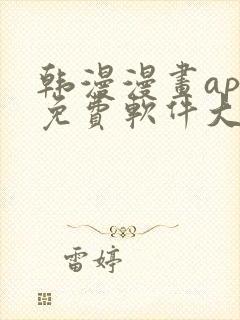 韩漫漫畫ap
免費軟件大
雷婷